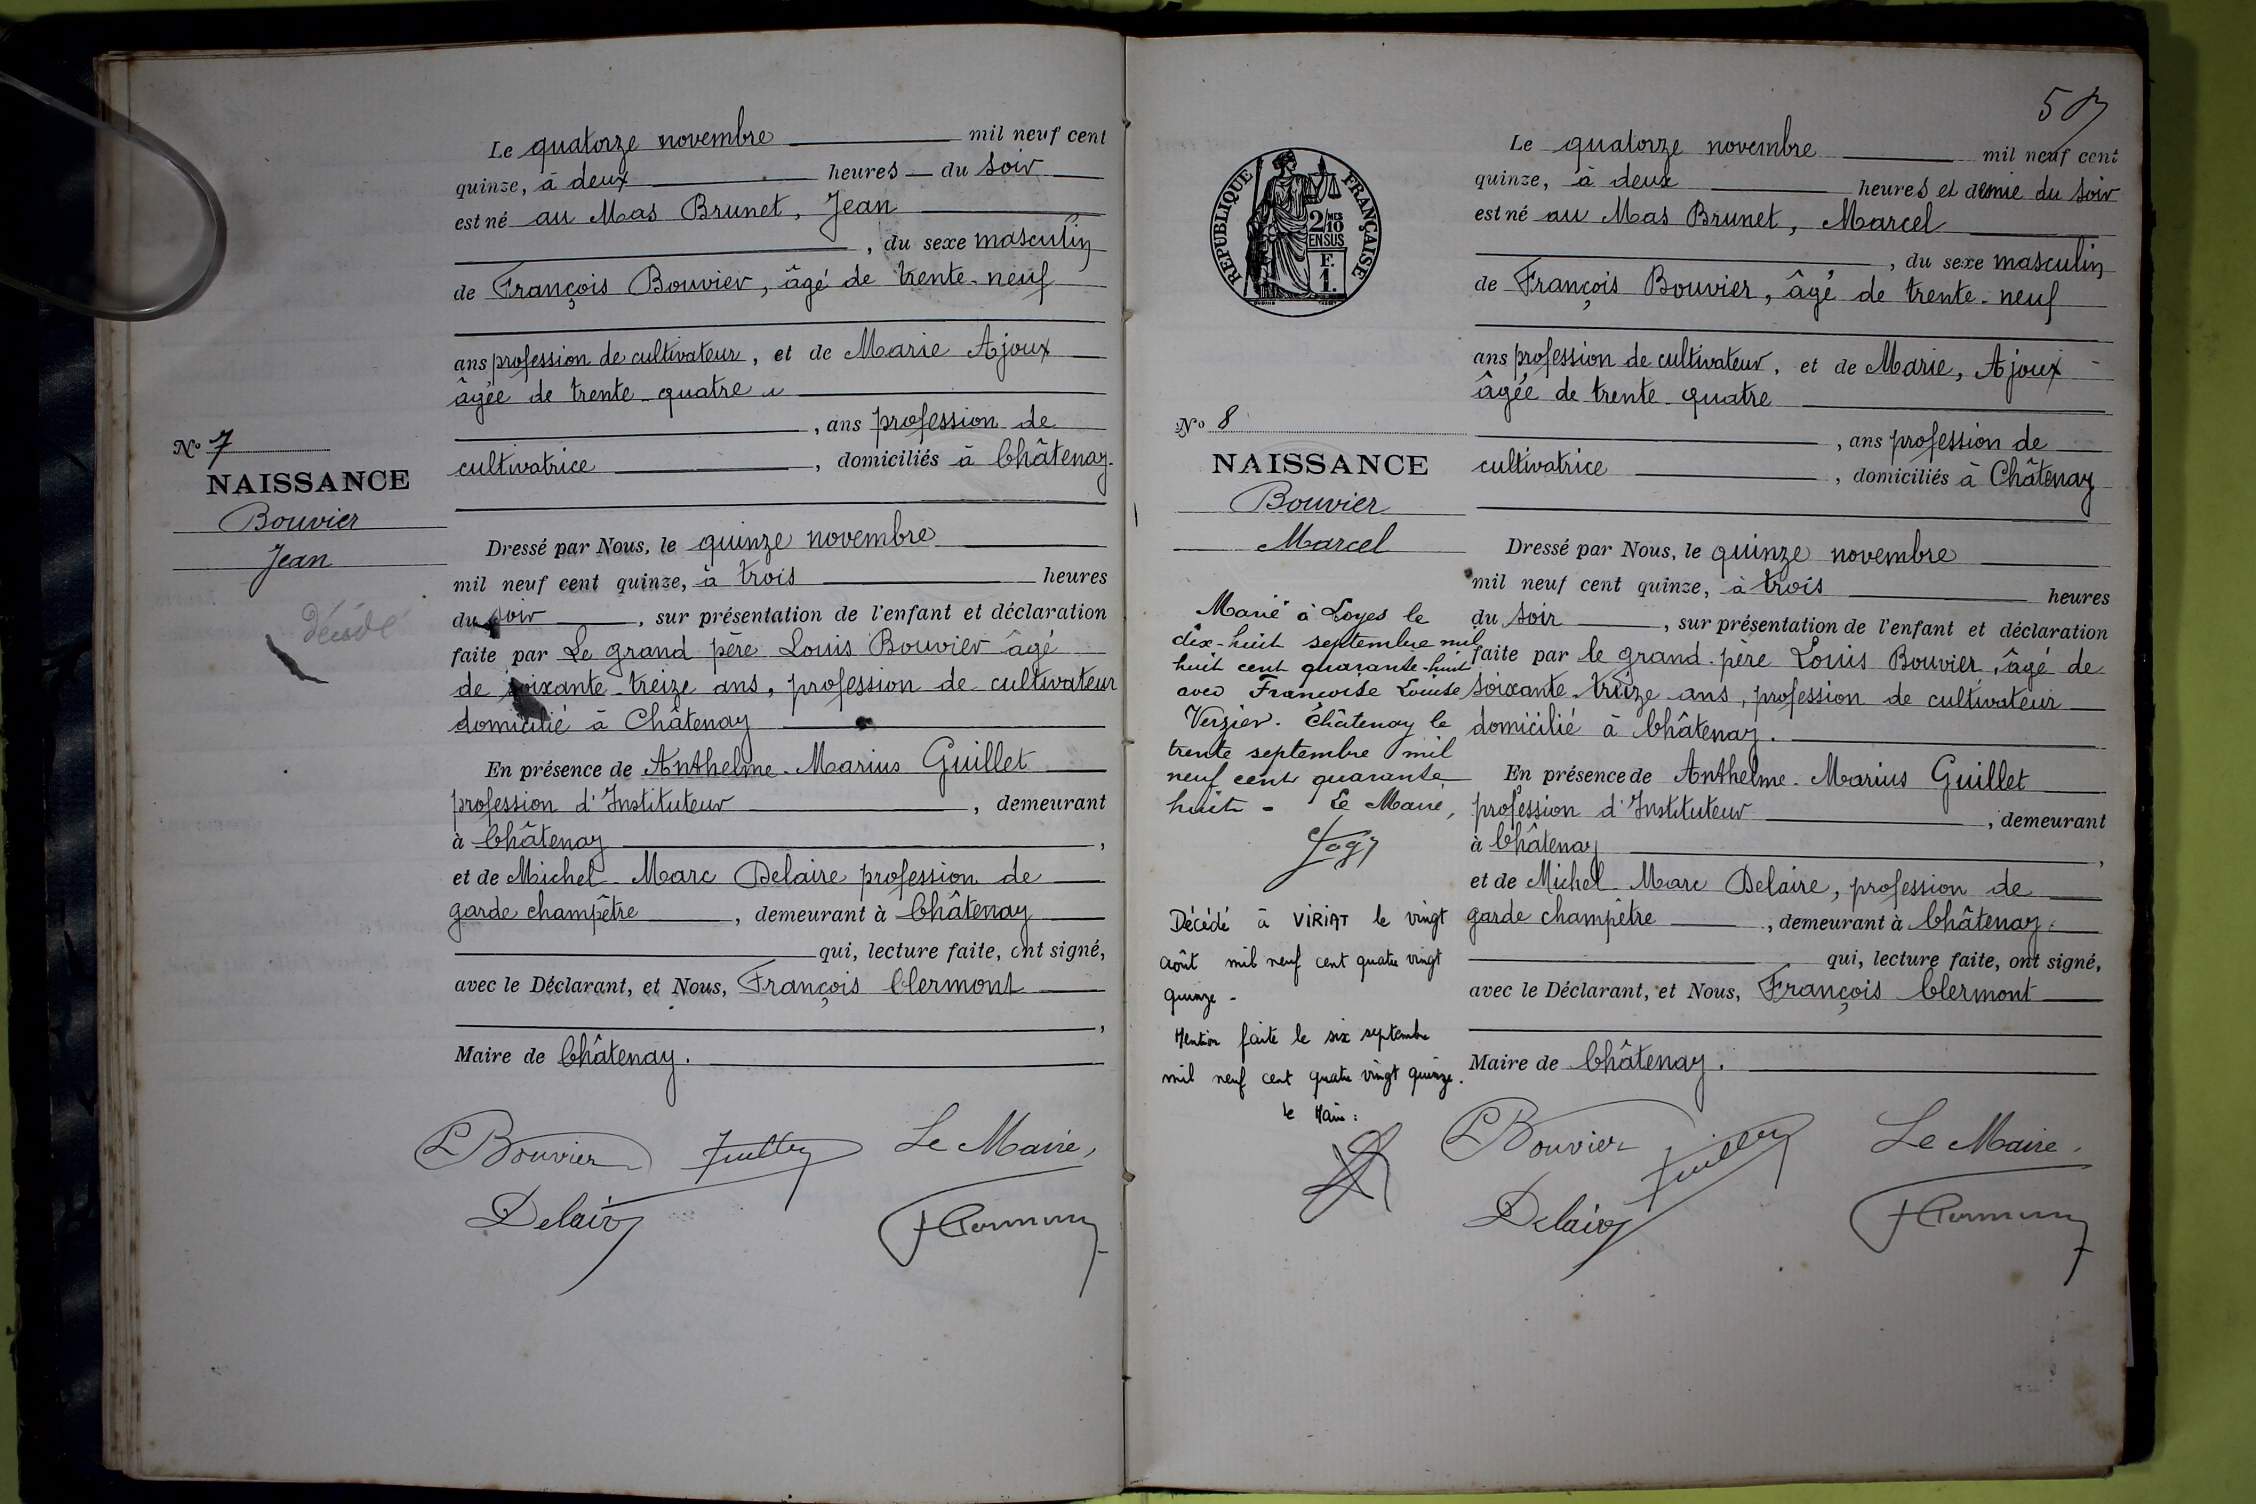 Le quatorze novembre mil neuf cent
quinze, à deux heures du soir
est né au Mas Brunet, Jean
, du sexe masculin
de François Bouvier, âgé de trente-neuf
ans profession de cultivateur, et de Marie Ajoux
âgée de trente-quatre
, ans profession de
cultivatrice, domiciliés à Châtenay.
N° 7
NAISSANCE
Bouvier
Jean
Décédé
Dressé par Nous, le quinze novembre
mil neuf cent quinze, à trois heures
du soir, sur présentation de l'enfant et déclaration
faite par Le grand père Louis Bouvier âgé
de soixante-treize ans, profession de cultivateur
domicilié à Châtenay
En présence de Anthelme-Marius Guillet
profession d'Instituteur, demeurant
à Châtenay,
et de Michel Marc Delaire profession de
garde champêtre, demeurant à Châtenay
qui, lecture faite, ont signé,
avec le Déclarant, et Nous, François Clermont
,
Maire de Châtenay.
L Bouvier Guillet Le Maire,
Delaire FClermont
5
RÉPUBLIQUE FRANÇAISE
2/10
MES
EN SUS
F.
1.
Le quatorze novembre mil neuf cent
quinze, à deux heures et demie du soir
est né au Mas Brunet, Marcel
, du sexe masculin
de François Bouvier, âgé de trente-neuf
ans profession de cultivateur, et de Marie, Ajoux
âgée de trente-quatre
, ans profession de
cultivatrice, domiciliés à Châtenay
N° 8
NAISSANCE
Bouvier
Marcel
Marié à Loyes le
dix-huit septembre mil
huit cent quarante-huit
avec Françoise Louise
Verzier. Châtenay le
trente septembre mil
neuf cent quarante
huit - Le Maire,
Décédé à VIRIAT le vingt
août mil neuf cent quatre vingt
quinze -
Mention faite le six septembre
mil neuf cent quatre vingt quinze.
Le Maire :
Dressé par Nous, le quinze novembre
mil neuf cent quinze, à trois heures
du soir, sur présentation de l'enfant et déclaration
faite par le grand-père Louis Bouvier, âgé de
soixante-treize ans, profession de cultivateur
domicilié à Châtenay.
En présence de Anthelme-Marius Guillet
profession d'Instituteur, demeurant
à Châtenay,
et de Michel Marc Delaire, profession de
garde champêtre, demeurant à Châtenay.
qui, lecture faite, ont signé,
avec le Déclarant, et Nous, François Clermont
Maire de Châtenay.
L Bouvier Guillet Le Maire.
Delaire FClermont